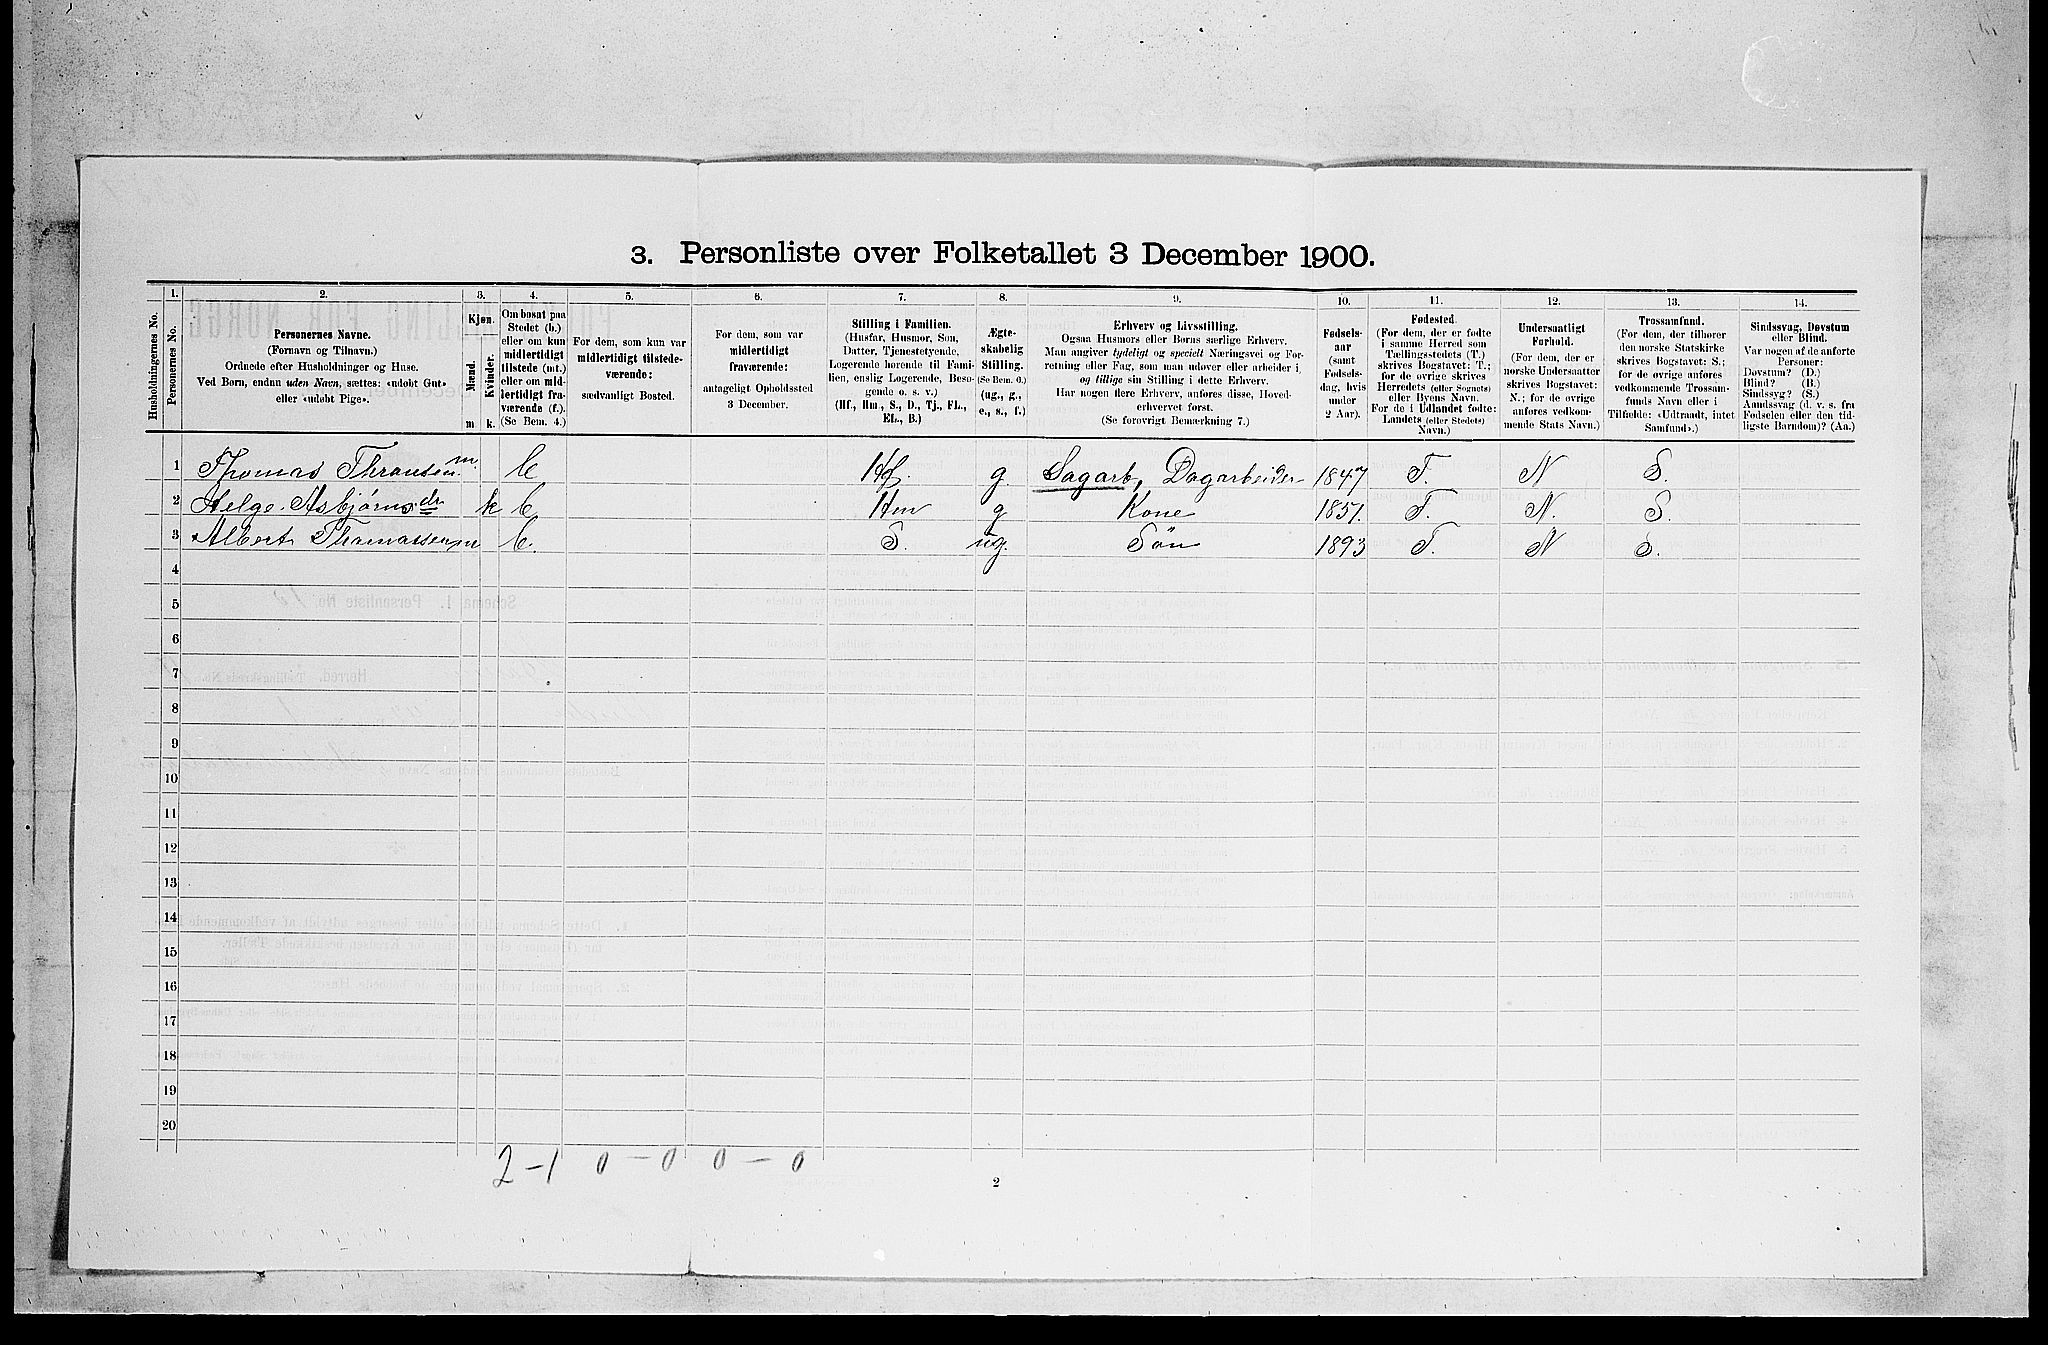 3. Personliste over Folketallet 3 December 1900.
1. 2. 3. 4. 5. 6. 7. 8. 9. 10. 11. 12. 13. 14.
Husholdningernes No.
Personernes No.
Personernes Navne.
(Fornavn og Tilnavn.)
Ordnede efter Husholdninger og Huse.
Ved Børn, endnu uden Navn, sættes: «udøbt Gut»
eller «udøbt Pige».
Kjøn.
Mænd.
Kvinder.
m k.
Om bosat paa
Stedet (b.)
eller om kun
midlertidigt
tilstede (mt.)
eller om mid-
lertidigt fra-
værende (f.).
(Se Bem. 4.)
For dem, som kun var
midlertidigt tilstede-
værende:
sædvanligt Bosted.
For dem, som var
midlertidigt
fraværende:
antageligt Opholdssted
3 December.
Stilling i Familien.
(Husfar, Husmor, Søn,
Datter, Tjenestetyende,
Logerende hørende til Fami-
lien, enslig Logerende, Besø-
gende o. s. v.)
(Hf., Hm., S., D., Tj., FL.,
EL., B.)
Ægte-
skabelig
Stilling.
(Se Bem. 6.)
(ug., g.,
e., s., f.)
Erhverv og Livsstilling.
Ogsaa Husmors eller Børns særlige Erhverv.
Man angiver tydeligt og specielt Næringsvei og For-
retning eller Fag, som man udøver eller arbeider i,
og tillige sin Stilling i dette Erhverv.
Har nogen flere Erhverv, anføres disse, Hoved-
erhvervet først.
(Se forøvrigt Bemærkning 7.)
Fødsels-
aar
(samt
Fødsels-
dag, hvis
under
2 Aar).
Fødested.
(For dem, der er fødte
i samme Herred som
Tællingsstedets (T.)
skrives Bogstavet: T.;
for de øvrige skrives
Herredets (eller Sognets)
eller Byens Navn.
For de i Udlandet fødte:
Landets (eller Stedets)
Navn.)
Undersaatligt
Forhold.
(For dem, der er
norske Undersaatter
skrives Bogstavet:
N.; for de øvrige
anføres vedkom-
mende Stats Navn.)
Trossamfund.
(For dem, der tilhører
den norske Statskirke
skrives Bogstavet: S.;
for de øvrige anføres
vedkommende Trossam-
funds Navn eller i
Tilfælde: «Udtraadt, intet
Samfund».)
Sindssvag, Døvstum
eller Blind.
Var nogen af de anførte
Personer:
Døvstum? (D.)
Blind? (B.)
Sindssyg? (S.)
Aandssvag (d. v. s. fra
Fødselen eller den tid-
ligste Barndom)? (Aa.)
1 Thomas Thransen m. b Hf. g. Sagarb, Dagarbeider 1847 T. N S.
2 Helge Asbjørnsdr k b Hm g Kone 1851. T. N. S.
3 Albert Thomassen m b. S. ug. Søn 1893 T. N S.
4
5
6
7
8
9
10
11
12
13
14
15
16
17
18
19
20
2-1 0-0 0-0
2